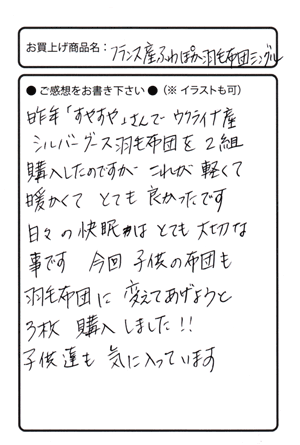 お買上げ商品名：フランス産ふわぽか羽毛布団シングル
● ご感想をお書き下さい ●（※ イラストも可）
昨年「すやすや」さんで ウクライナ産
シルバーグース羽毛布団を 2組
購入したのですが これが 軽くて
暖かくて とても 良かったです
日々の快眠はとても 大切な
事です 今回 子供の布団も
羽毛布団に 変えてあげようと
3枚 購入しました!!
子供達も 気に入っています